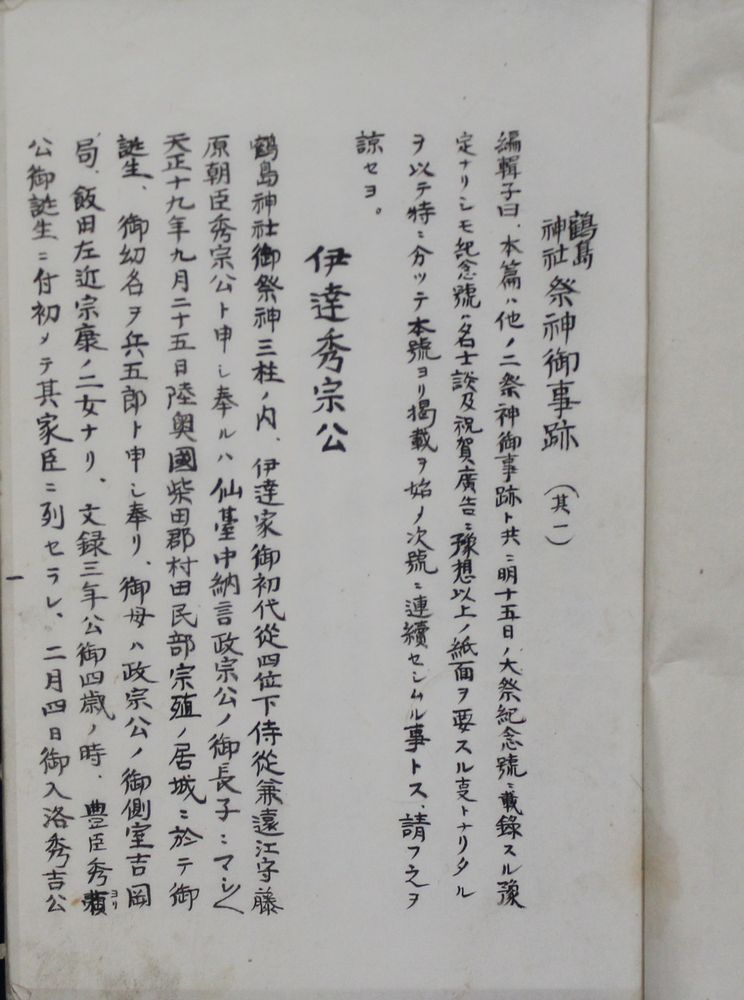 鶴島神社祭神御事跡（其一）
編輯子曰、本篇ハ他ノ二祭神御事跡ト共ニ明十五日ノ大祭紀念號ニ載錄スル豫
定ナリシモ紀念號ハ名士談及祝賀廣告ニ豫想以上ノ紙面ヲ要スル事トナリタル
ヲ以テ特ニ分ツテ本號ヨリ揭載ヲ始メ次號ニ連續セシムル事トス、請フ之ヲ
諒セヨ。
伊達秀宗公
鶴島神社御祭神三柱ノ内、伊達家御初代從四位下侍從兼遠江守藤
原朝臣秀宗公ト申シ奉ルハ仙臺中納言政宗公ノ御長子ニマシ〱
天正十九年九月二十五日陸奥國柴田郡村田民部宗殖ノ居城ニ於テ御
誕生、御幼名ヲ兵五郎ト申シ奉リ、御母ハ政宗公ノ御側室吉岡
局、飯田左近宗康ノ二女ナリ、文録三年公御四歳ノ時、豊臣秀頼ヨリ
公御誕生ニ付初メテ其家臣ニ列セラレ、二月四日御入洛秀吉公
一